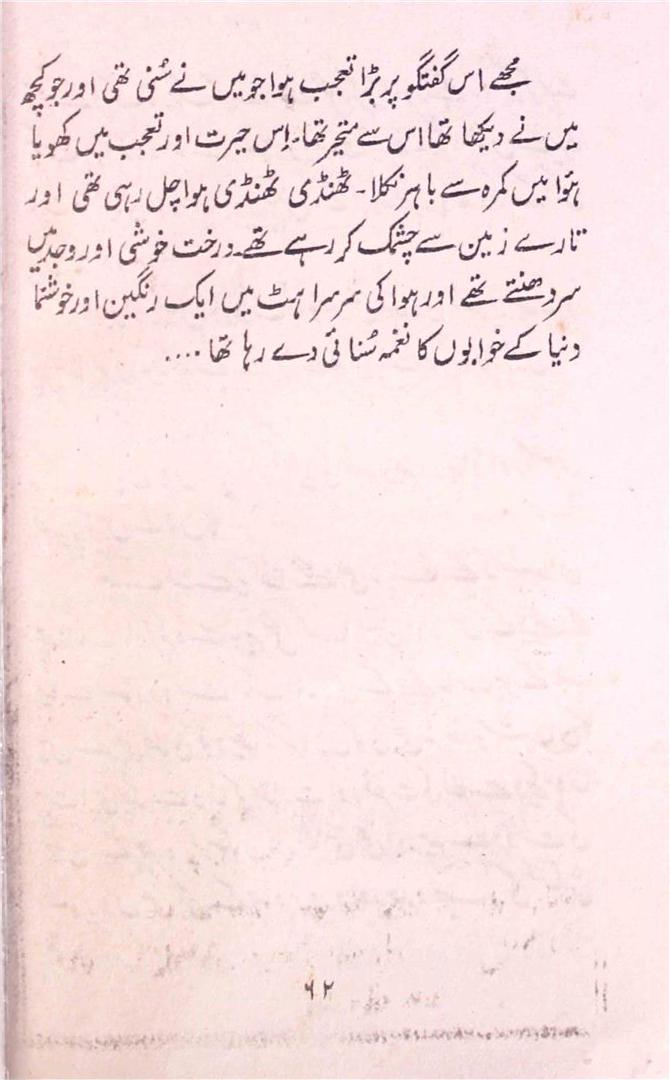 مجھے اس گفتگو پر بڑا تعجب ہوا جو میں نے سُنی تھی اور جو کچھ
میں نے دیکھا تھا اس سے متحیر تھا۔ اِس حیرت اور تعجب میں کھویا
ہُوا میں کمرہ سے باہر نکلا۔ ٹھنڈی ٹھنڈی ہوا چل رہی تھی اور
تارے زمین سے چشمک کر رہے تھے۔ درخت خوشی اور وجد میں
سر دھنتے تھے اور ہوا کی سرسراہٹ میں ایک رنگین اور خوشنما
دنیا کے خوابوں کا نغمہ سُنائی دے رہا تھا ....
۶۲